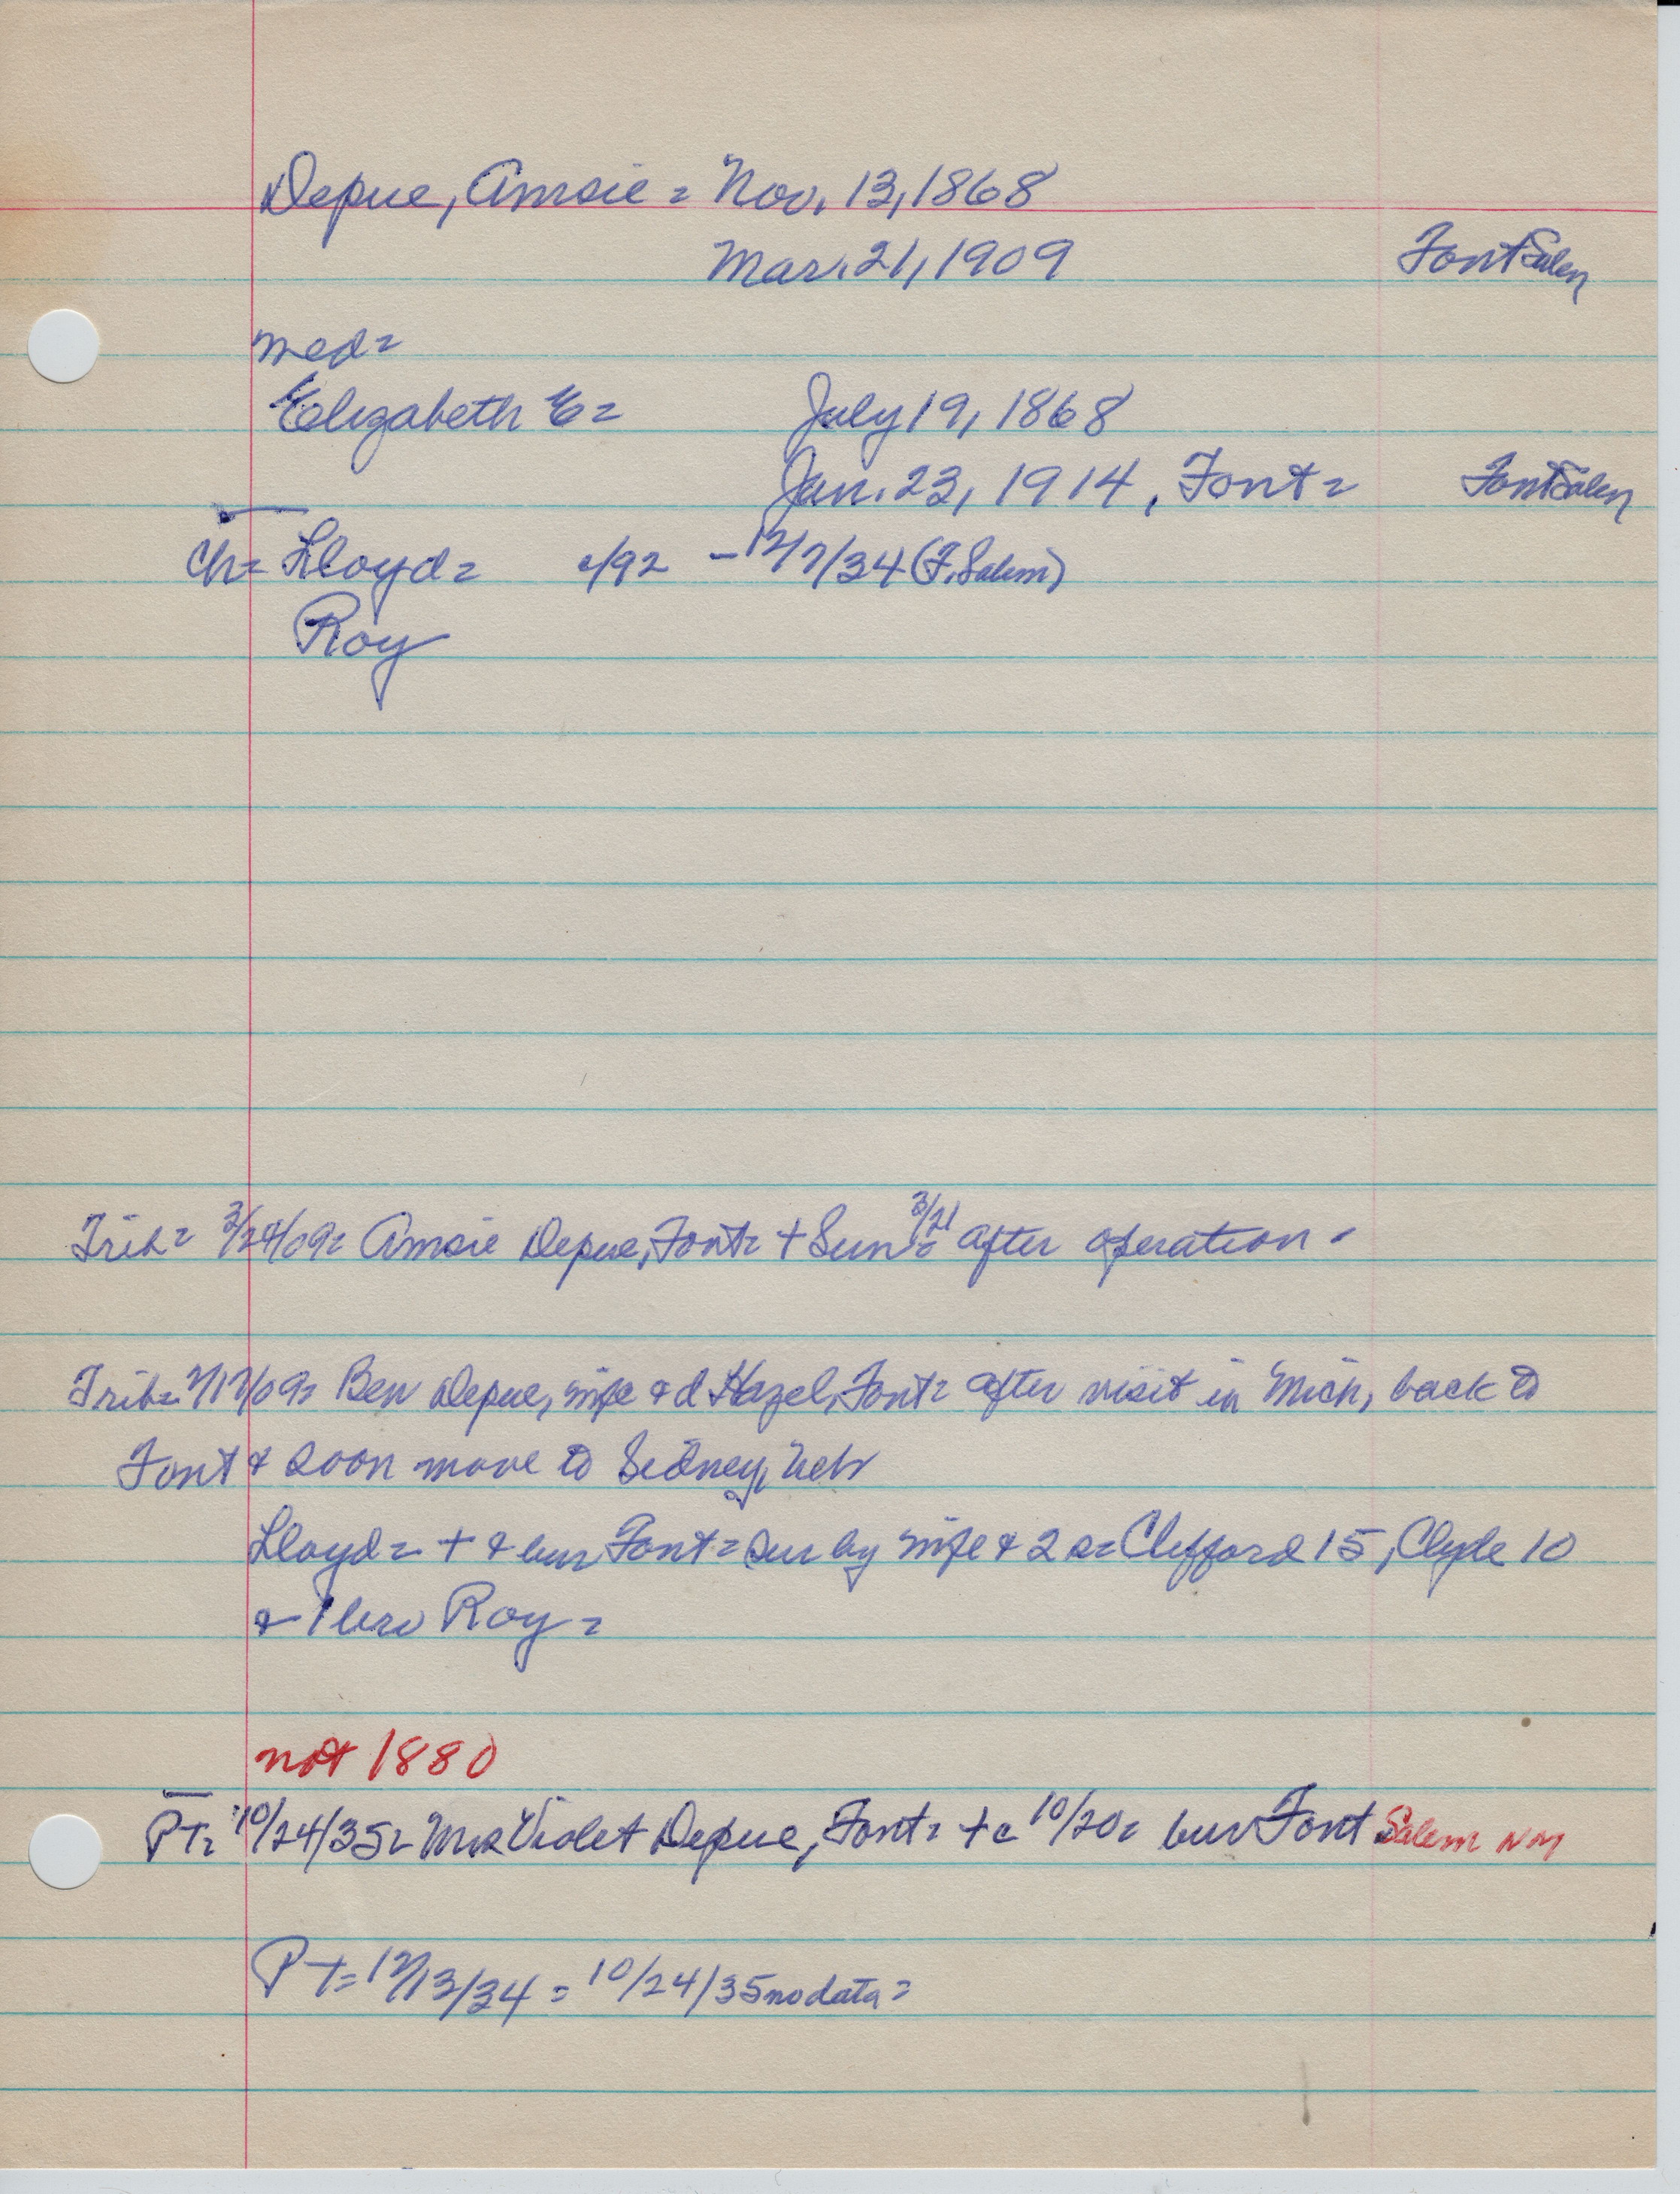 Depue, Amsie = Nov. 13, 1868
Mar. 21, 1909 Font Salem
med=
Elizabeth E = July 19, 1868
Jan. 23, 1914, Font = Font Salem
Ch = Lloyd = c/92 - 12/7/34 (F. Salem)
Roy
Trib = 3/24/09 = Amsie Depue, Font = + Sun 3/21 = after operation -
Trib = Ben Depue, wife & d Hazel, Font = after visit in Mich, back to
Font & soon move to Sidney, Neb
Lloyd = + & bur Font = sur by wife & 2 s = Clifford 15, Clyde 10
& 1 bro Roy =
not 1880
PT = 10/24/35 = Mrs Violet Depue, Font = + c 10/20 = bur Font Salem NM
PT = 12/13/34 = 10/24/35 no data =